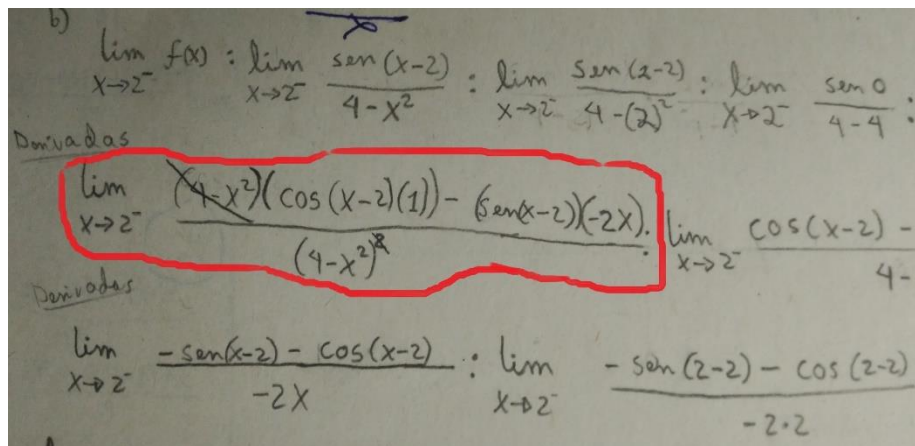 b)
lim x→2⁻ f(x) : lim x→2⁻ sen(x-2)/4-x² : lim x→2⁻ sen(2-2)/4-(2)² : lim x→2⁻ sen 0/4-4 :
Derivadas
lim x→2⁻ (4-x²)(cos(x-2)(1)) - (sen(x-2))(-2x)/(4-x²)² : lim x→2⁻ cos(x-2) -/4-
Derivadas
lim x→2⁻ -sen(x-2) - cos(x-2)/-2x : lim x→2⁻ -sen(2-2) - cos(2-2)/-2·2